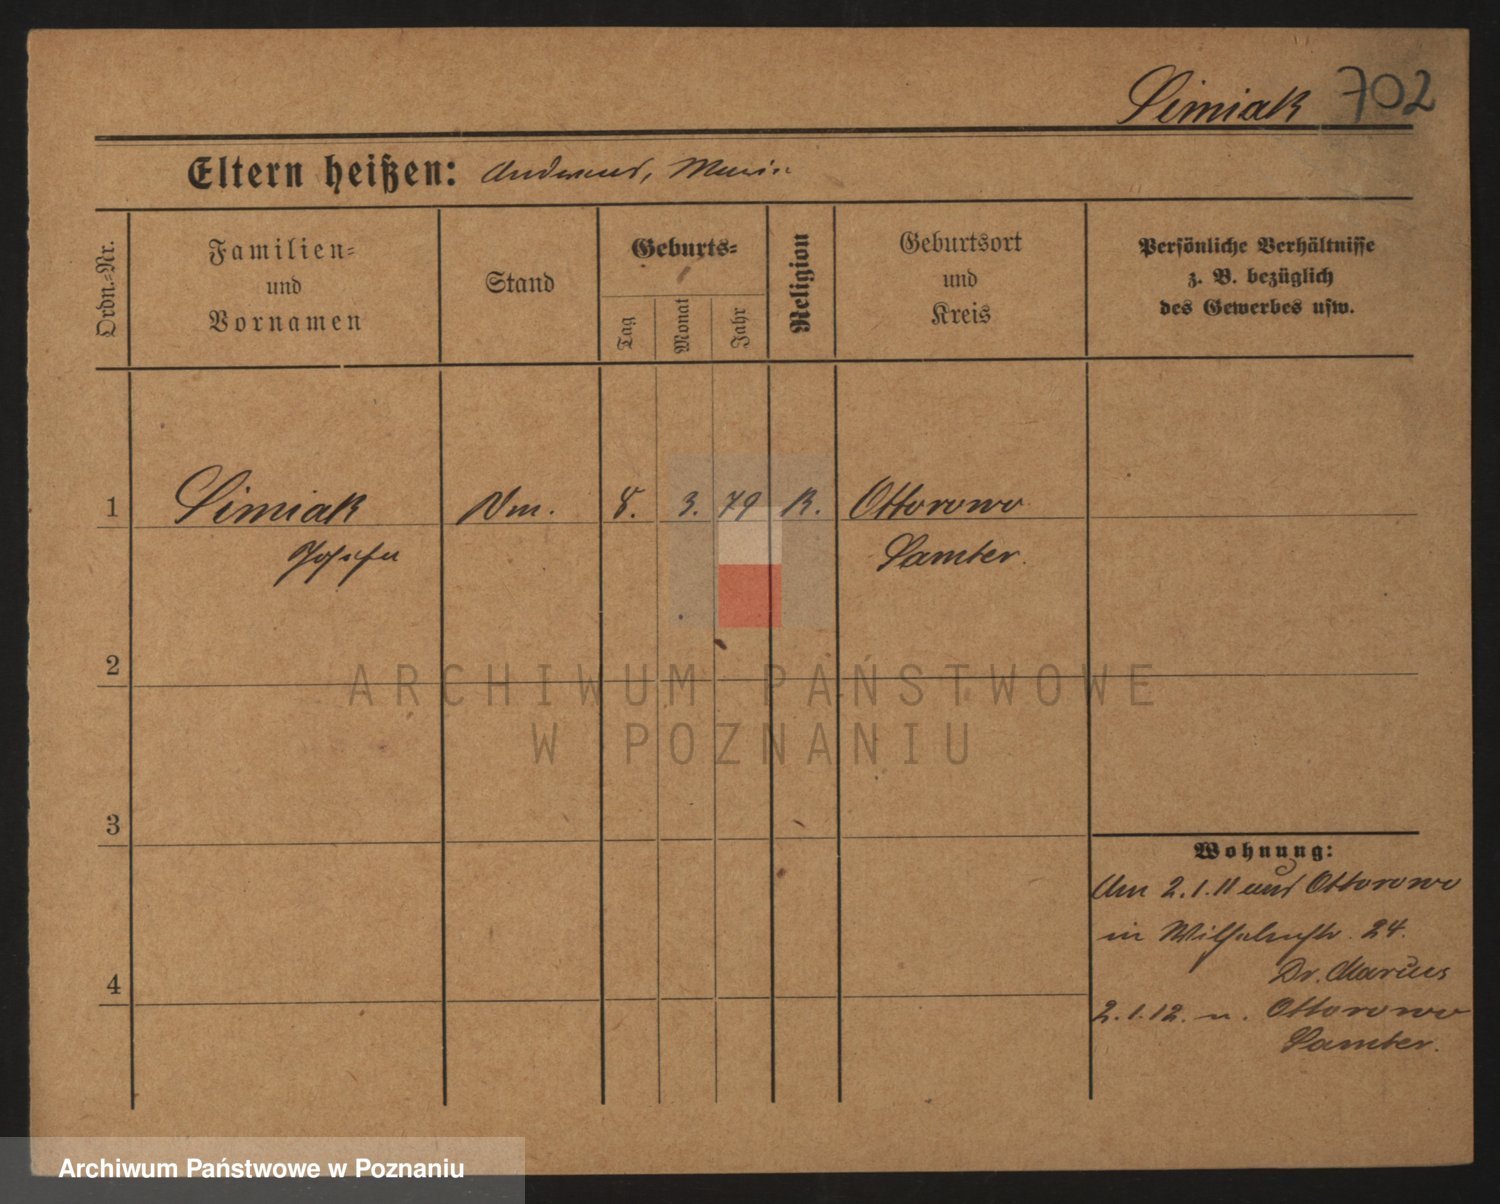 Simiak 702
Eltern heißen: Andreas, Marie
Ordn.-Nr.
Familien-
und
Vornamen
Stand
Geburts-
Tag
Monat
Jahr
Religion
Geburtsort
und
Kreis
Persönliche Verhältnisse
z. B. bezüglich
des Gewerbes usw.
1 Simiak 8. 3. 79 K. Ottorowo
Josefa Samter.
2
ARCHIWUM PAŃSTWOWE
W POZNANIU
3
Wohnung:
Am 2.1.11 aus Ottorowo
in Wilhelmstr. 24.
Dr. Marcus
4
2.1.12. n. Ottorowo
Samter.
Archiwum Państwowe w Poznaniu